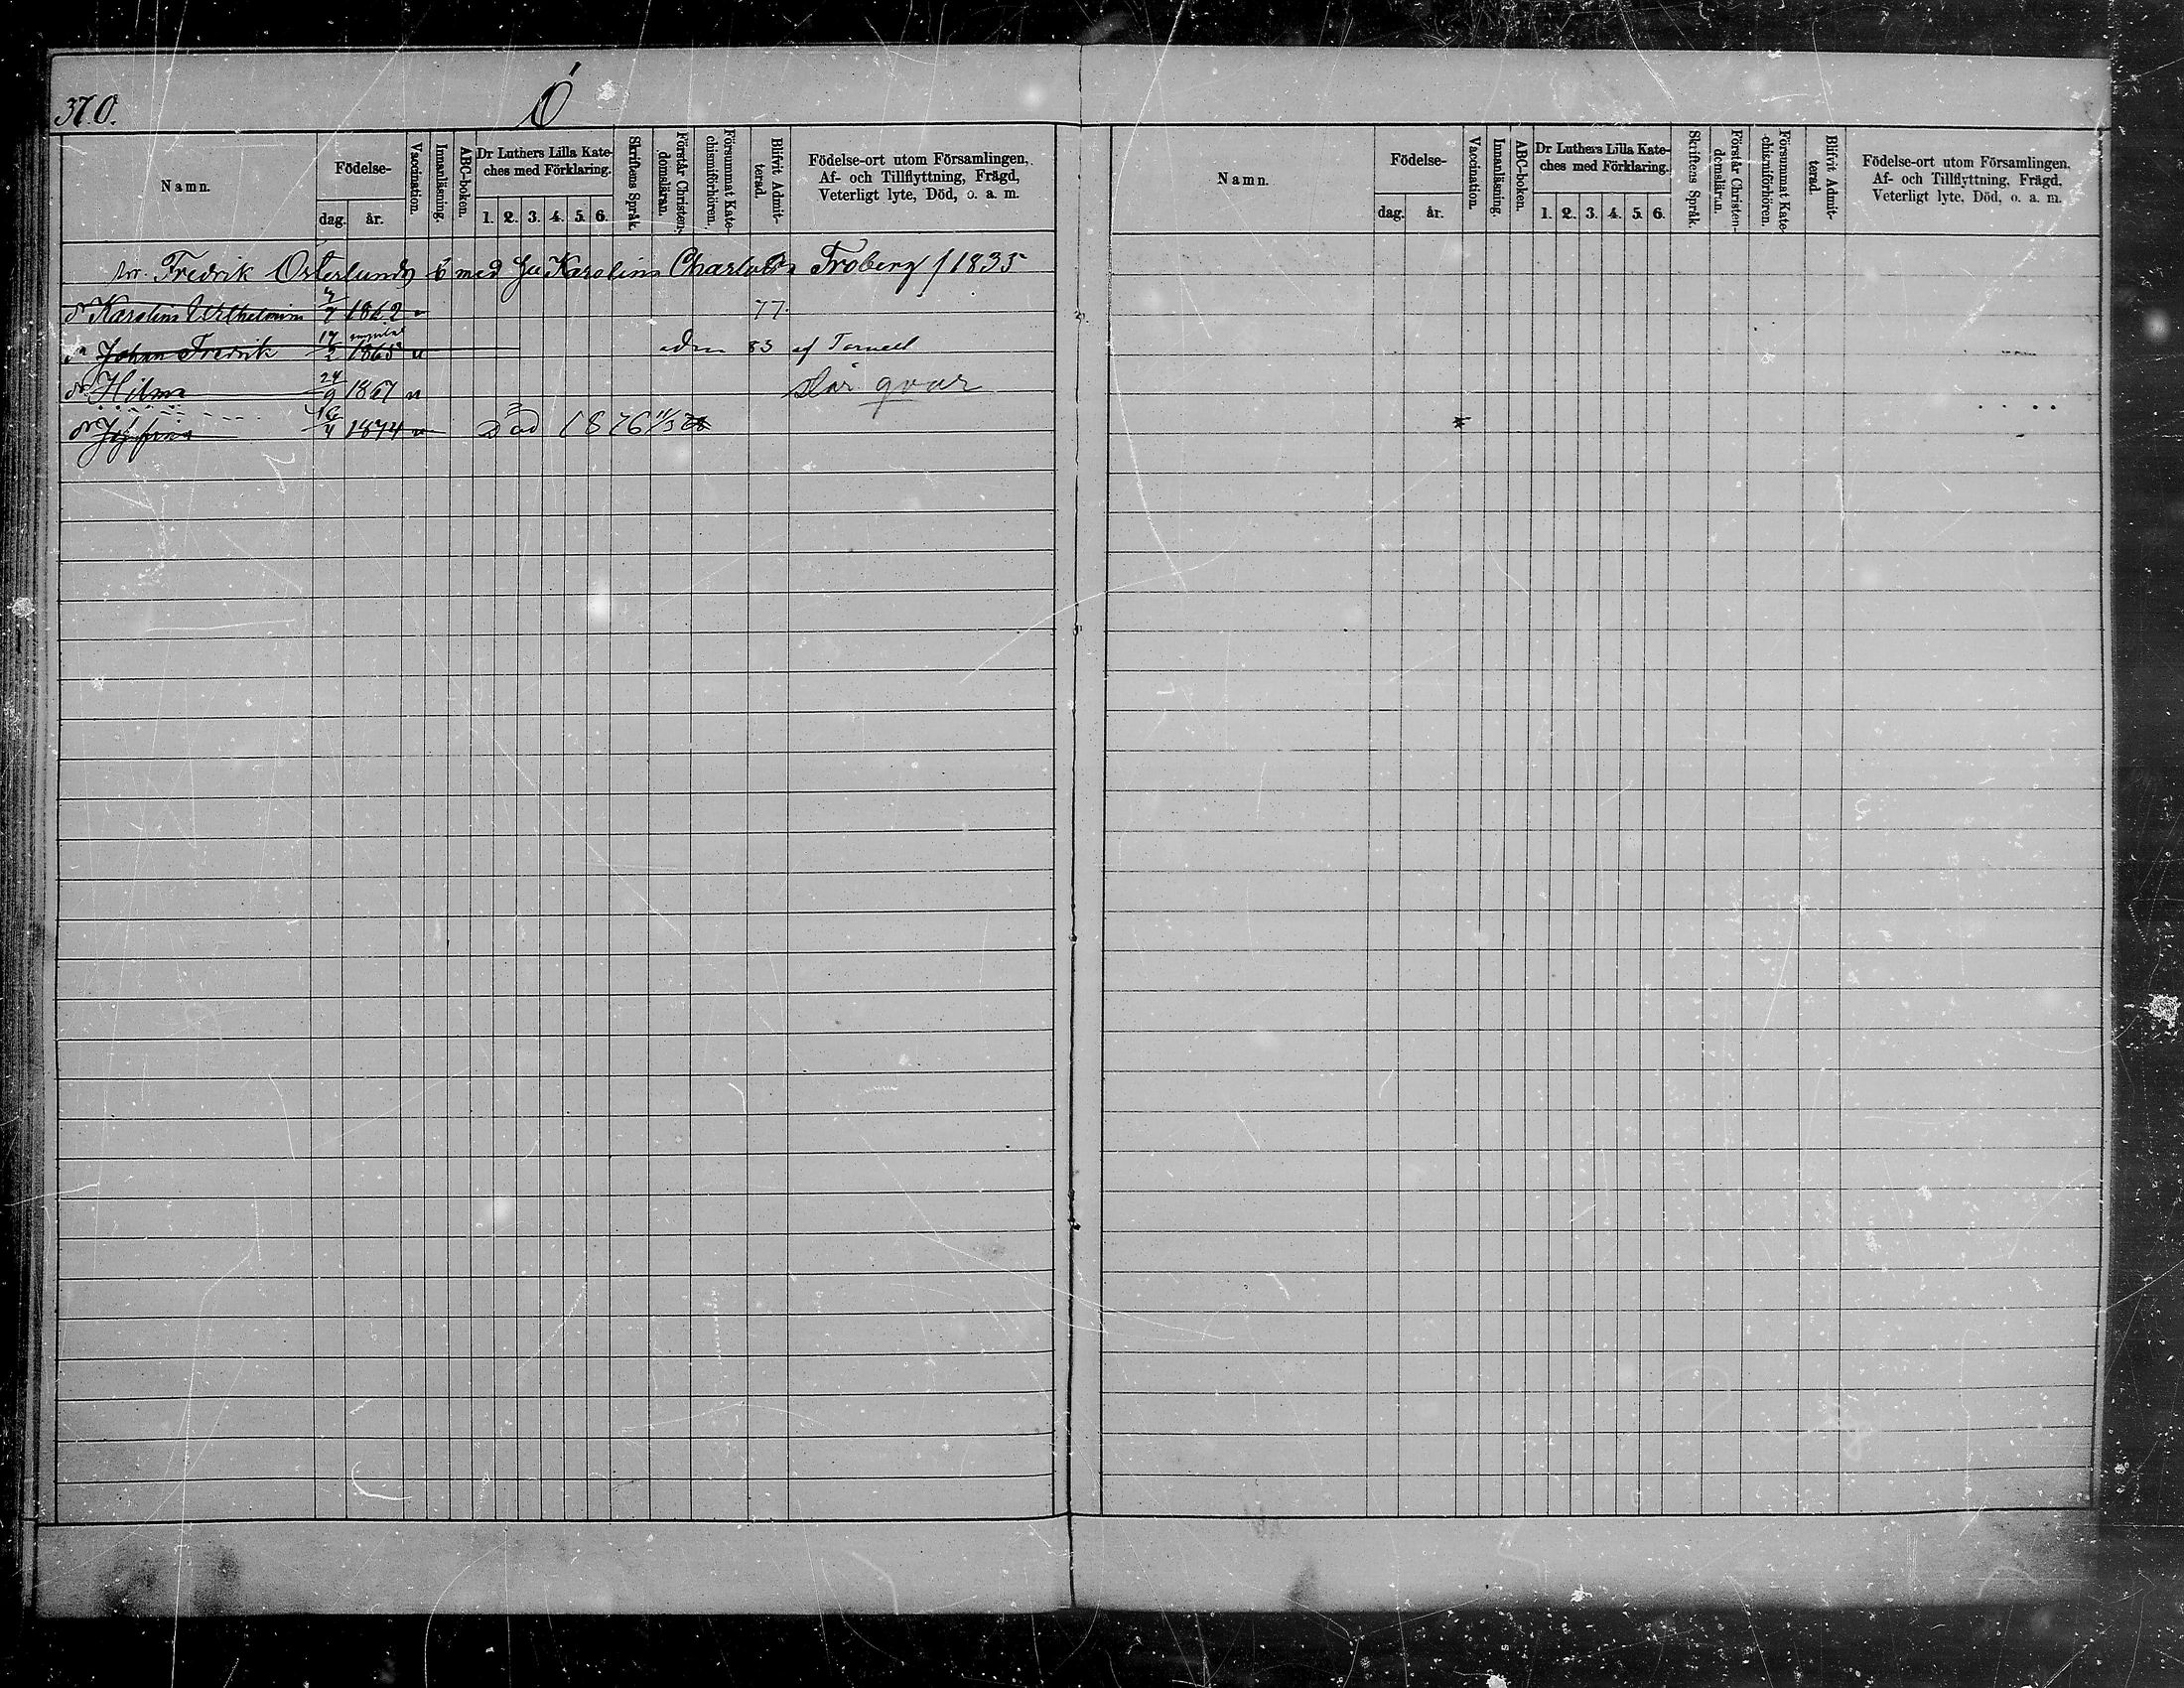 370.
Ö
Namn.
Födelse-
dag.
år.
Vaccination.
Innanläsning.
ABC-boken.
Dr Luthers Lilla Kate-
ches med Förklaring.
1. 2. 3. 4. 5. 6.
Skriftens Språk.
Förstår Christen-
domsläran.
Försummat Kate-
chismiförhören.
Blifvit Admit-
terad.
Födelse-ort utom Församlingen,
Af- och Tillflyttning, Frägd,
Veterligt lyte, Död, o. a. m.
Fredrik Österlunds b med Karolina Charlotta Froberg f 1835
dr Karolina Wilhelmina 4/7 1862 v 77
sn Johan Fredrik 17/2 1865 v adm 83 af
dr Hilma 24/9 1867 v står qvar
dr Josefina 16/4 1874 v Död 1876 11/3
Namn.
Födelse-
dag.
år.
Vaccination.
Innanläsning.
ABC-boken.
Dr Luthers Lilla Kate-
ches med Förklaring.
1. 2. 3. 4. 5. 6.
Skriftens Språk.
Förstår Christen-
domsläran.
Försummat Kate-
chismiförhören.
Blifvit Admit-
terad.
Födelse-ort utom Församlingen.
Af- och Tillflyttning, Frägd,
Veterligt lyte, Död, o. a. m.